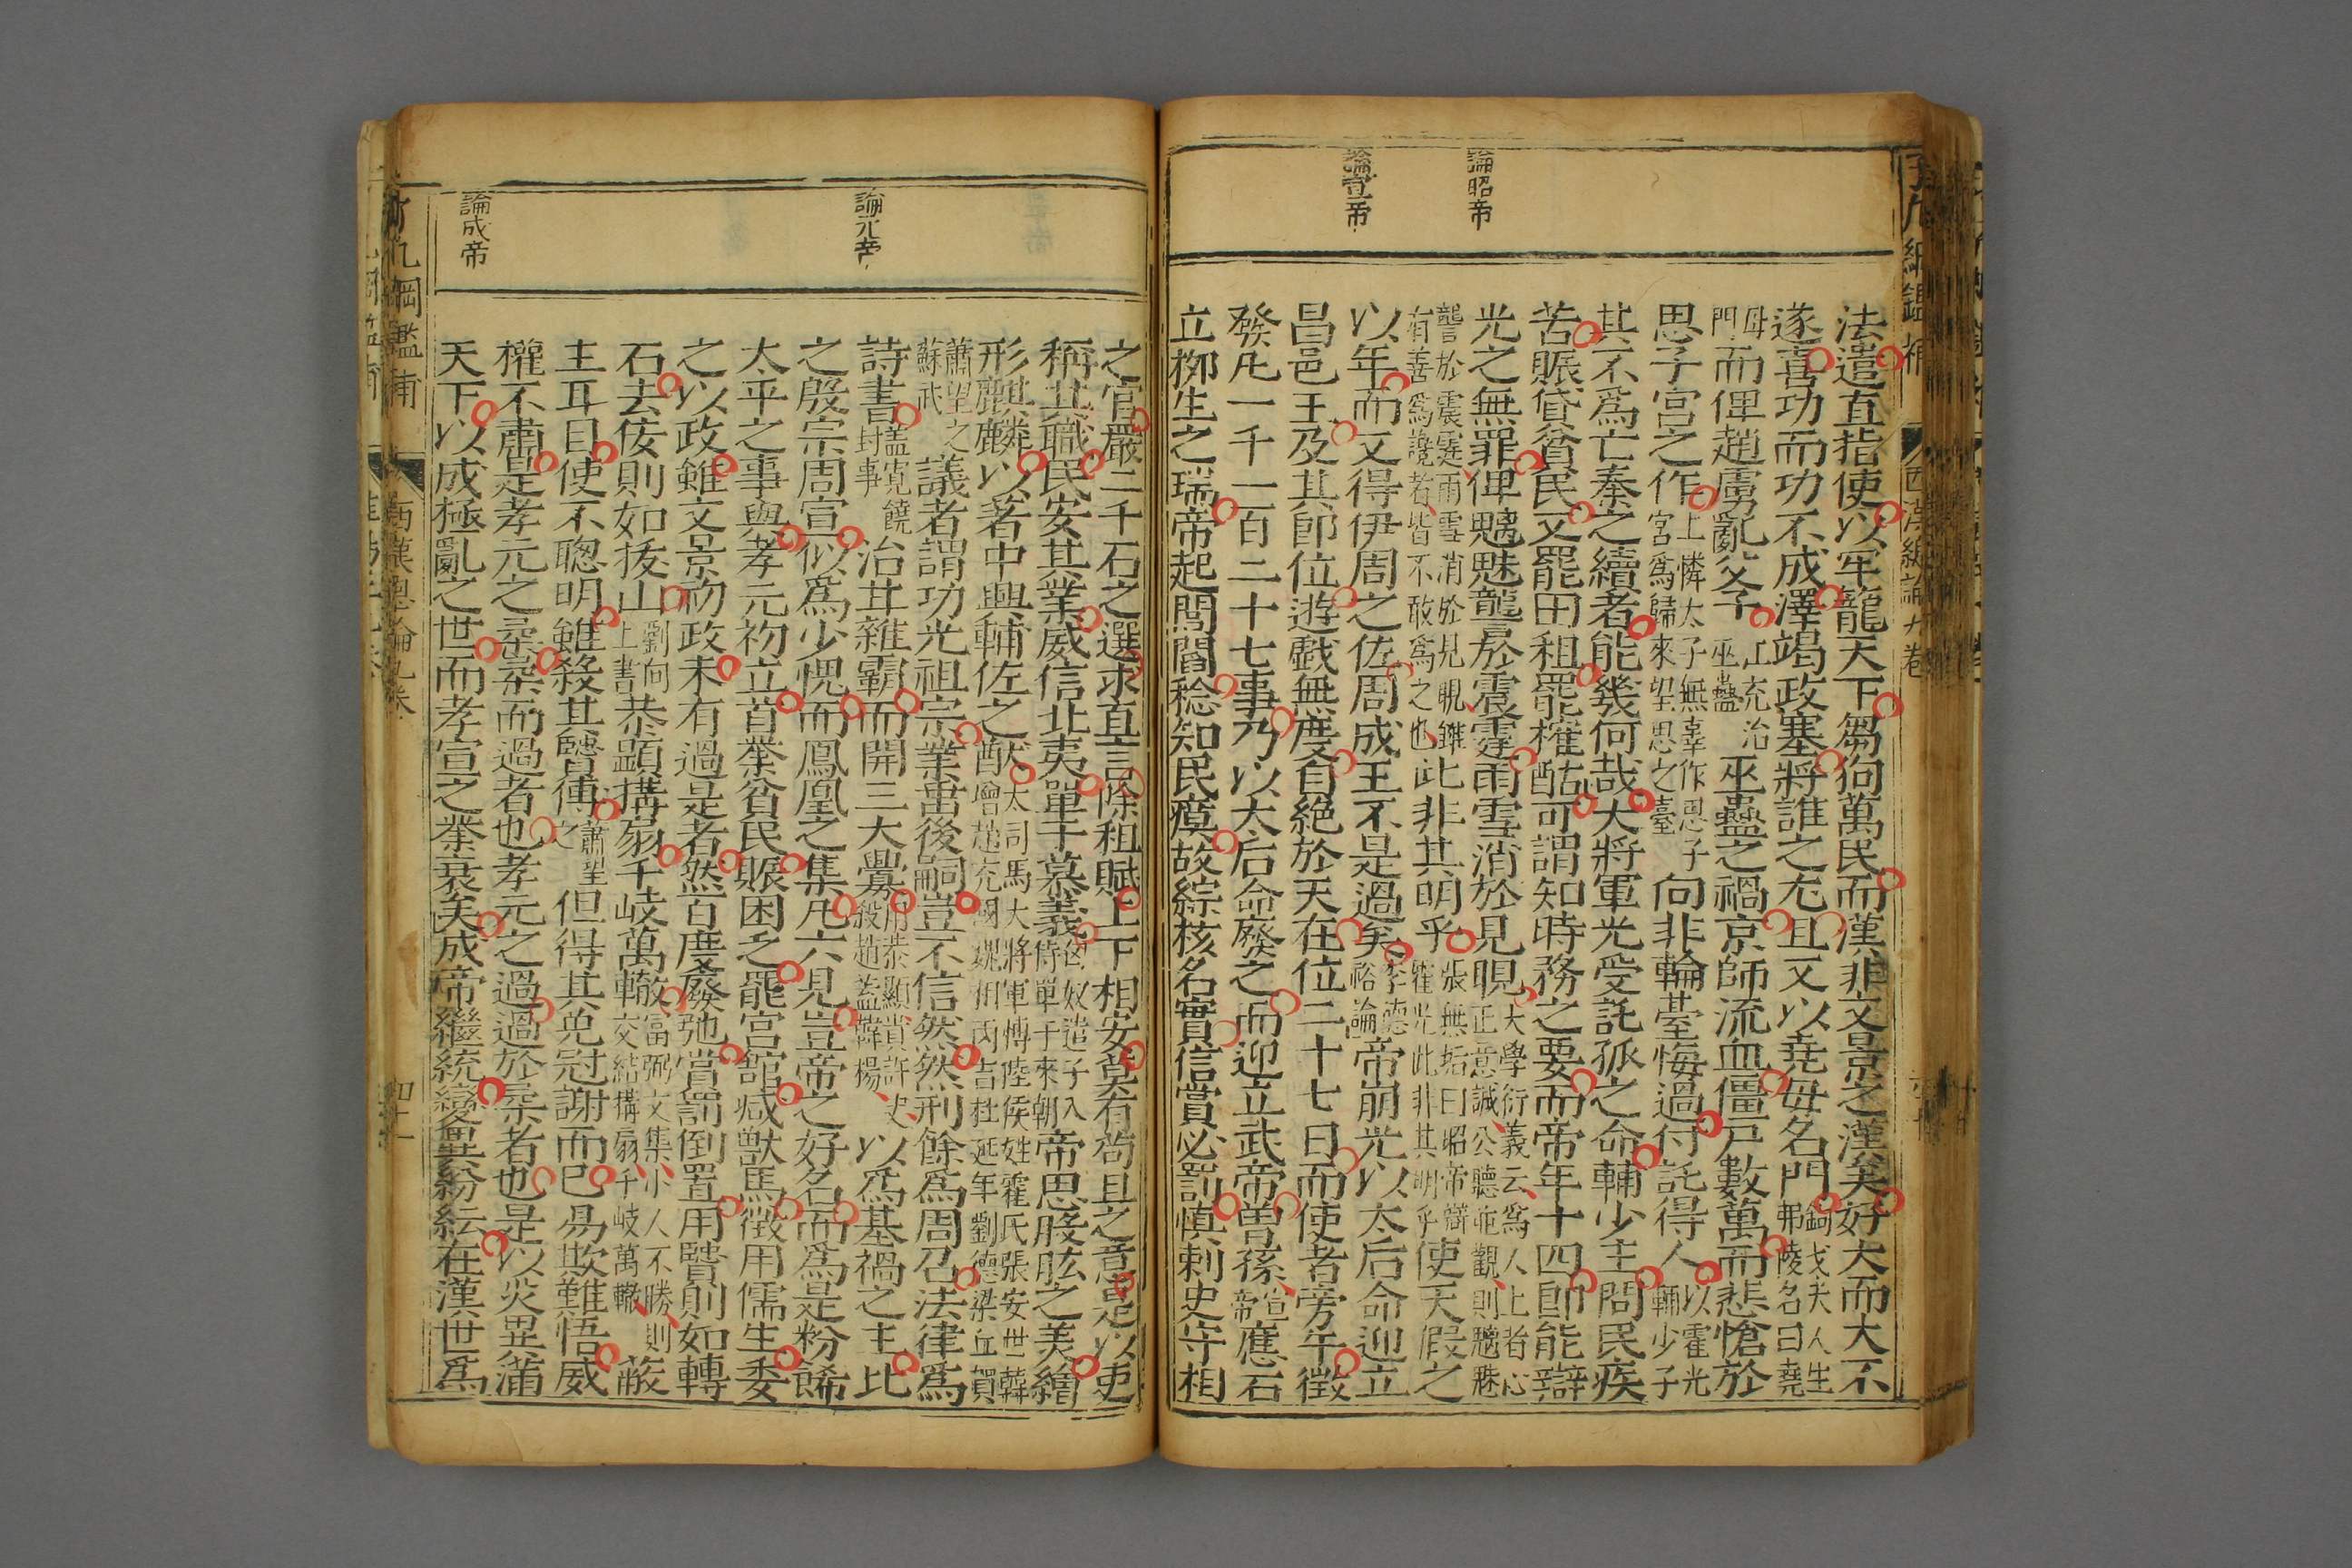 論昭帝
論宣帝
法遣直指使以牢籠天下芻狗萬民而漢非文景之漢矣好大而大不
遂喜功而功不成澤竭政塞將誰之尤且又以堯母名門鉤弋夫人生弗陵名曰堯
母門而俾趙虜亂父子江充治巫蠱巫蠱之禍京師流血僵尸數萬而悲愴於
思子宮之作上憐太子無辜作思子宮爲歸來望思之臺向非輪臺悔過付託得人以霍光輔少子
其不爲亡秦之續者能幾何哉大將軍光受託孤之命輔少主問民疾
苦賑貸貧民又罷田租罷榷酤可謂知時務之要而帝年十四即能辯
光之無罪俾魑魅讋於震霆雨雪消於見晛大學衍義云爲人上者心正意誠公聽並觀則魑魅
讋於震霆雨雪消於見晛雖有善爲讒者皆不敢爲之也此非其明乎張無垢曰昭帝辯霍光此非其明乎使天假之
以年而又得伊周之佐周成王不是過矣李德裕論帝崩光以太后命迎立
昌邑王及其即位遊戲無度自絕於天在位二十七日而使者旁午徵
發凡一千一百二十七事乃以太后命廢之而迎立武帝曾孫宣帝應石
立柳生之瑞帝起閭閻稔知民瘼故綜核名實信賞必罰慎刺史守相
論元帝
論成帝
之官嚴二千石之選求直言除租賦上下相安莫有苟且之意是以吏
稱其職民安其業威信北夷單于慕義匈奴遣子入侍單于來朝帝思股肱之美繪
形麒麟以著中興輔佐之猷太司馬大將軍博陸侯姓霍氏張安世韓增趙充國魏相丙吉杜延年劉德梁丘賀
蕭望之蘇武議者謂功光祖宗業畱後嗣豈不信然然刑餘爲周召法律爲
詩書蓋寬饒封事治其雜霸而開三大釁用恭顯貴許史殺趙蓋韓楊以爲基禍之主比
之殷宗周宣似爲少愧而鳳凰之集凡六見豈帝之好名而爲是粉餙
太平之事與孝元初立首業貧民賑困乏罷宮館减獸馬徵用儒生委
之以政雖文景初政未有過是者然百度廢弛賞罰倒置用賢則如轉
石去佞則如拔山劉向上書恭顯搆扇千岐萬轍富弼文集小人不勝則交結搆扇千岐萬轍蔽
主耳目使不聰明雖殺其賢傅蕭望之但得其免冠謝而已易欺難悟威
權不肅是孝元之柔柔而過者也孝元之過過於柔者也是以災異蒲
天下以成極亂之世而孝宣之業衰矣成帝繼統變異紛紜在漢世爲